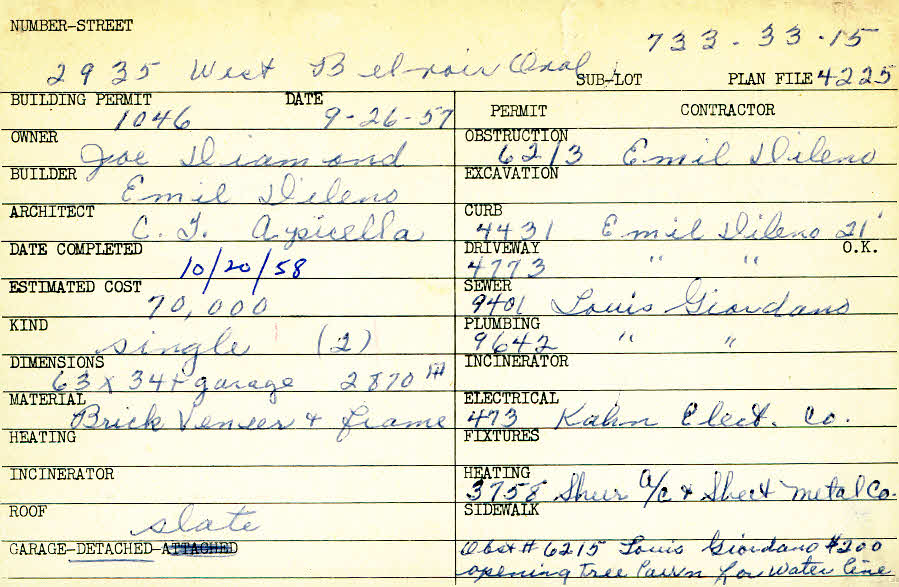 NUMBER-STREET
733-33-15
2935 West Belvoir Oval SUB-LOT PLAN FILE 4225
BUILDING PERMIT DATE
1046 9-26-57
OWNER
Joe Diamond
BUILDER
Emil Dileno
ARCHITECT
C. T. Apicella
DATE COMPLETED
10/20/58
ESTIMATED COST
70,000
KIND
single (2)
DIMENSIONS
63 x 34 + garage 2870
MATERIAL
Brick Veneer + frame
HEATING
INCINERATOR
ROOF
slate
GARAGE-DETACHED-ATTACHED
PERMIT CONTRACTOR
OBSTRUCTION
6213 Emil Dileno
EXCAVATION
CURB
4431 Emil Dileno 21'
DRIVEWAY O.K.
4773 " "
SEWER
9401 Louis Giordano
PLUMBING
9642 " "
INCINERATOR
ELECTRICAL
473 Kahn Elect. Co.
FIXTURES
HEATING
3758 A/c & Sheet Metal Co.
SIDEWALK
Obst # 6215 Louis Giordano $200
opening Tree Lawn for water line